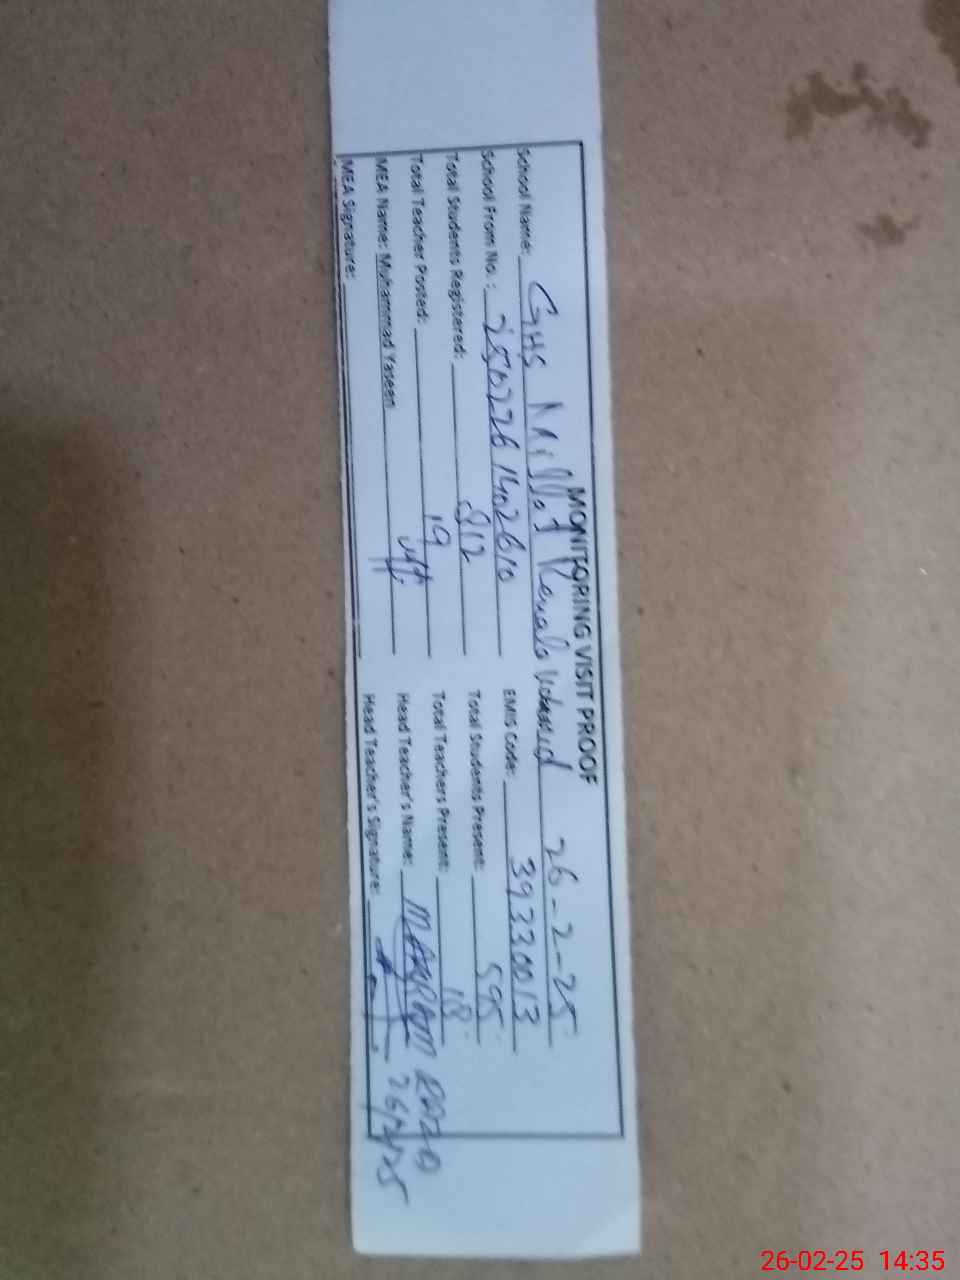 MONITORING VISIT PROOF
School Name: GHS Millat 26-2-25
School From No.: EMIS Code: 39330013
Total Students Registered: 812 Total Students Present: 595
Total Teacher Posted: 19 Total Teachers Present: 18
MEA Name: Muhammad Yaseen Head Teacher's Name:
MEA Signature: Head Teacher's Signature: 26/2/25
26-02-25 14:35